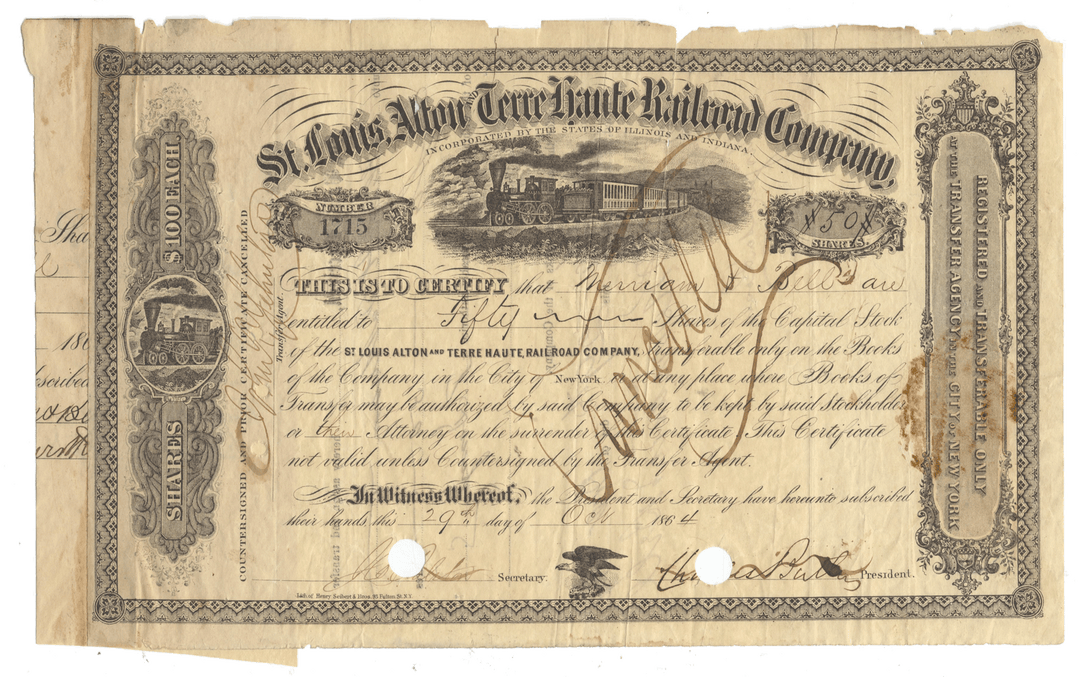 St. Louis, Alton AND Terre Haute Railroad Company,
INCORPORATED BY THE STATES OF ILLINOIS AND INDIANA.
NUMBER
1715
50
SHARES
THIS IS TO CERTIFY that Merriam & Bell are
entitled to Fifty Shares of the Capital Stock
of the ST LOUIS ALTON AND TERRE HAUTE, RAILROAD COMPANY, Transferable only on the Books
of the Company in the City of New York or at any place where Books of
Transfer may be authorized by said Company to be kept by said Stockholder
or their Attorney on the surrender of this Certificate This Certificate
not valid unless Countersigned by the Transfer Agent.
In Witness Whereof, the President and Secretary have hereunto subscribed
their hands this 29th day of Oct 1864
Secretary.
President.
Lith. of Henry Seibert & Bros. 93 Fulton St. N.Y.
Cancelled
$100 EACH
SHARES
COUNTERSIGNED AND PRIOR CERTIFICATE CANCELLED
Transfer Agent.
REGISTERED AND TRANSFERABLE ONLY
AT THE TRANSFER AGENCY IN THE CITY OF NEW YORK
Sha
186
scribed